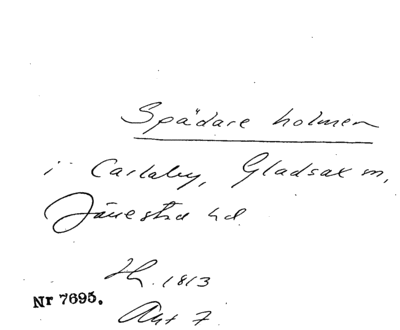 Spädare holmen
i Carlaby, Gladsax m,
Järrestad hd.
1813
Nr 7695.
Akt 7